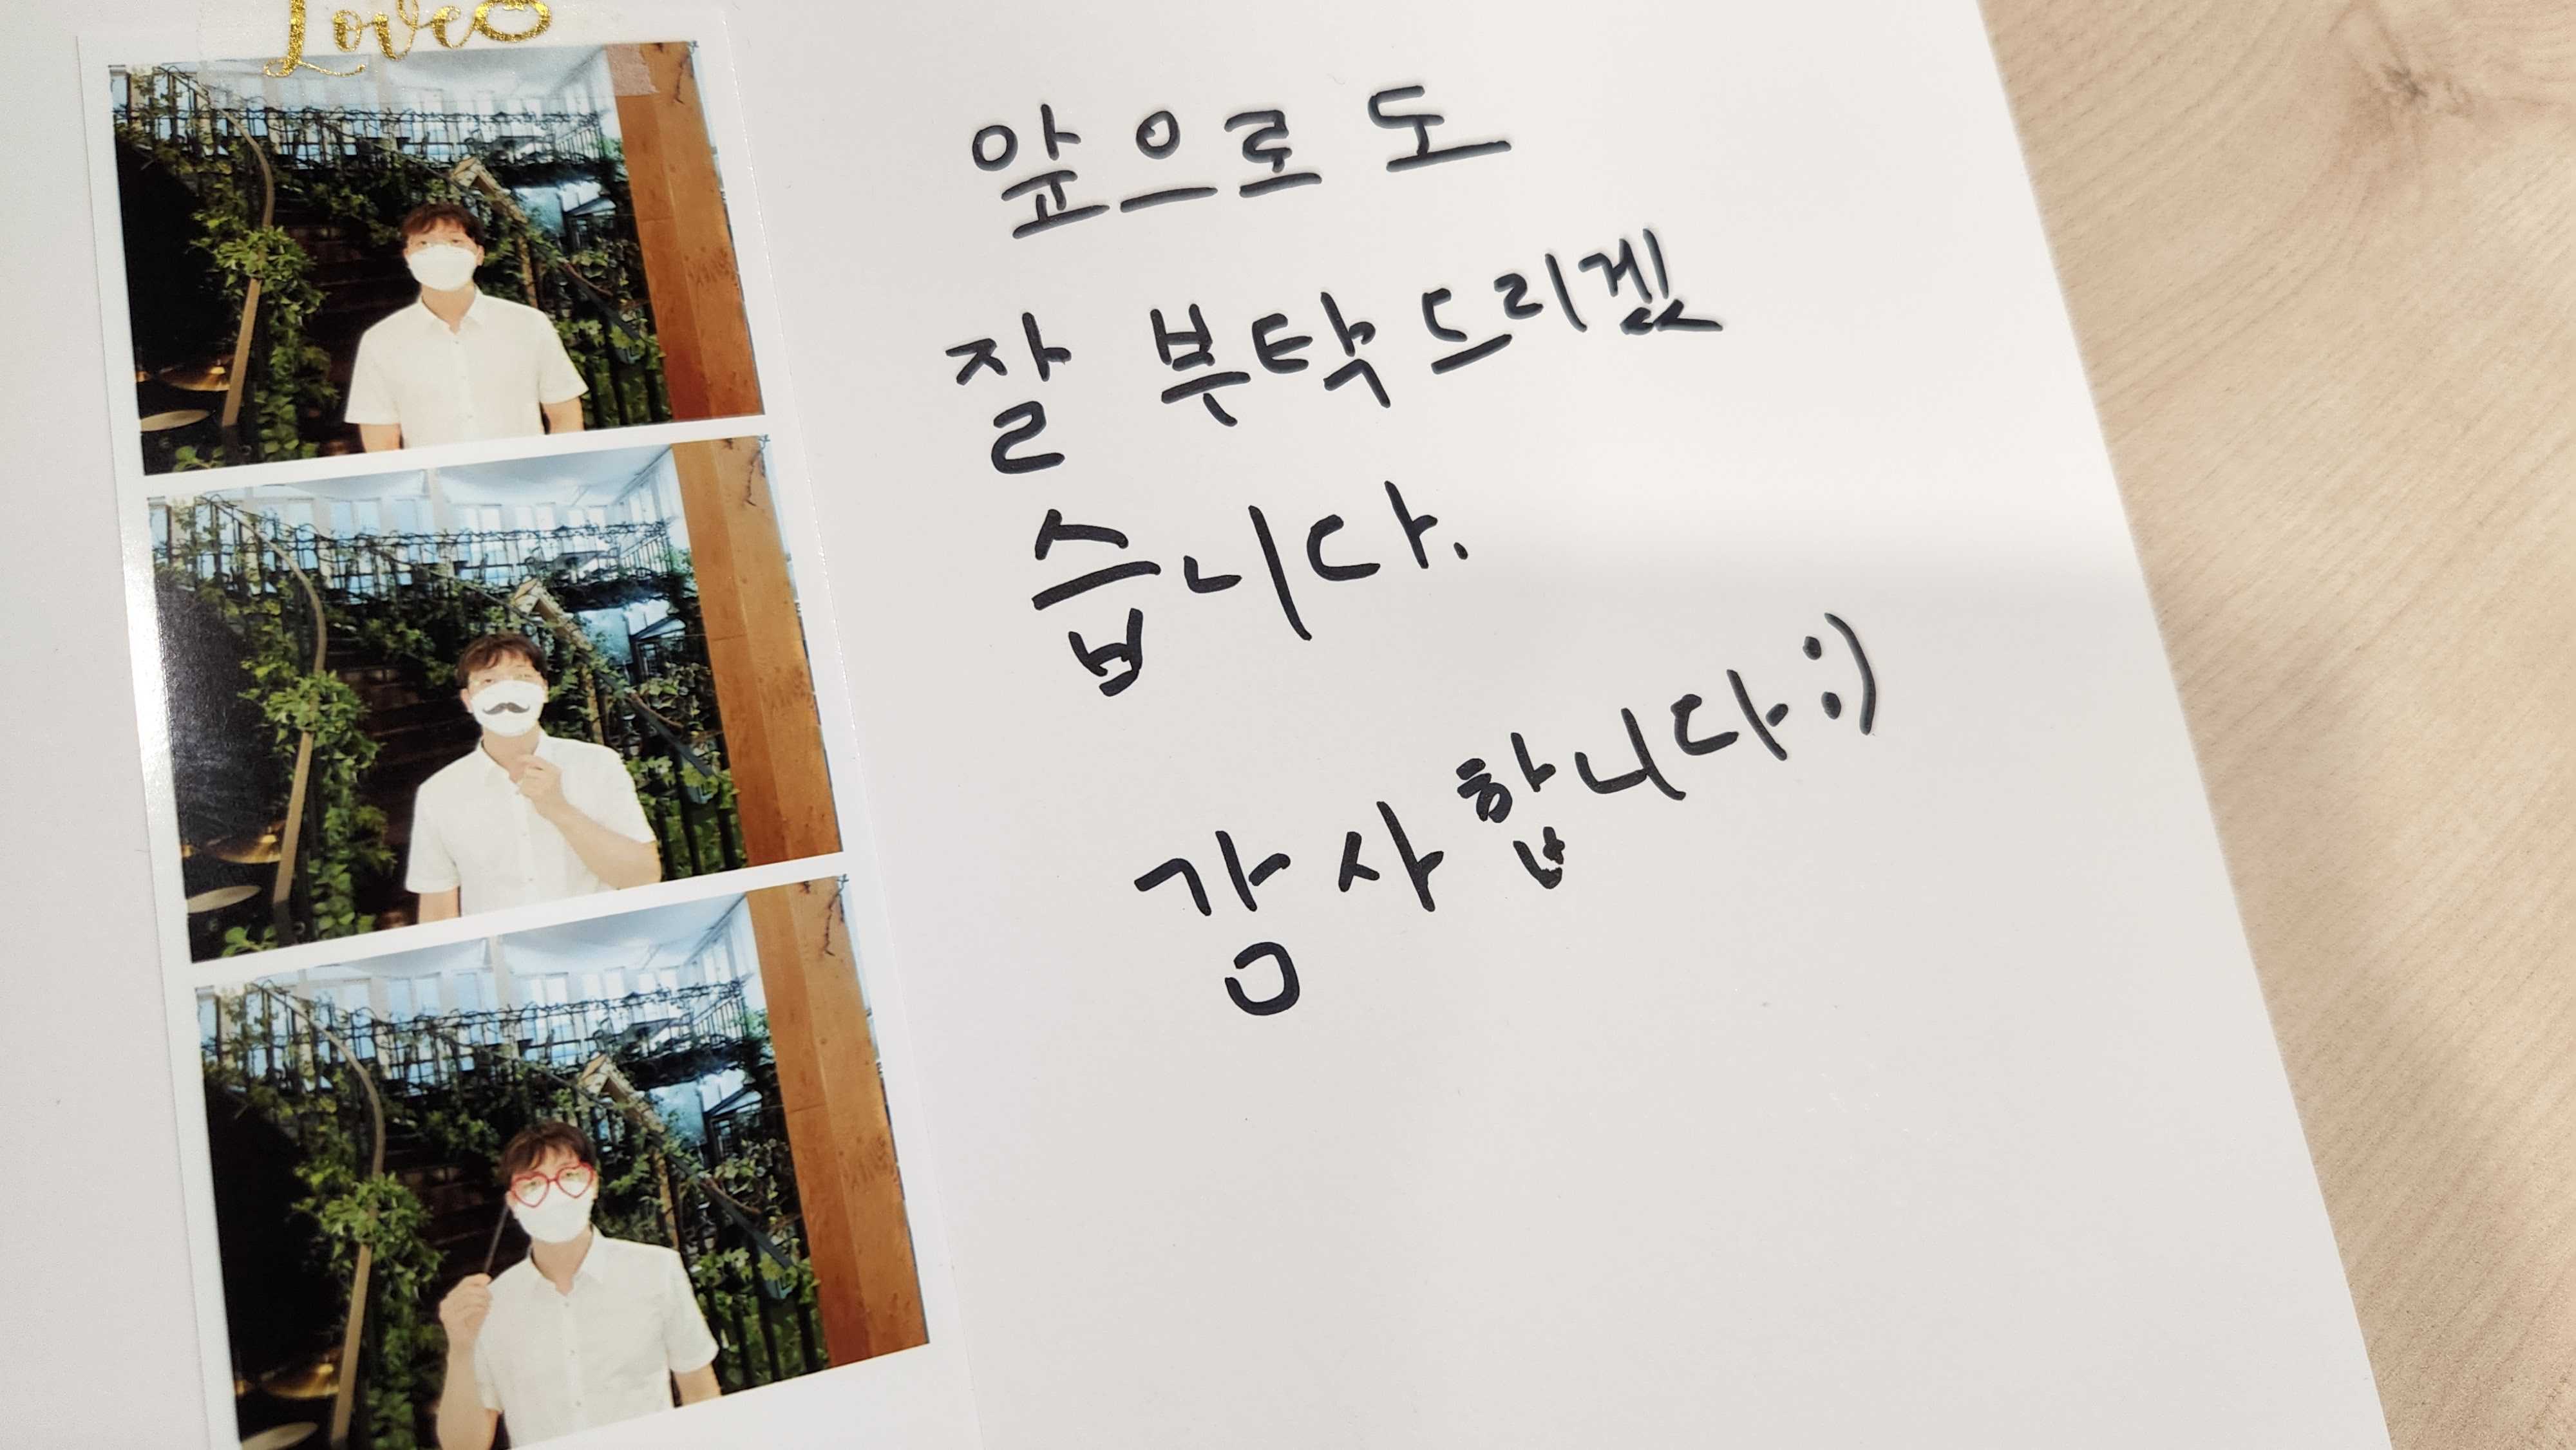 Love
앞으로도
잘 부탁드리겠
습니다.
감사합니다:)